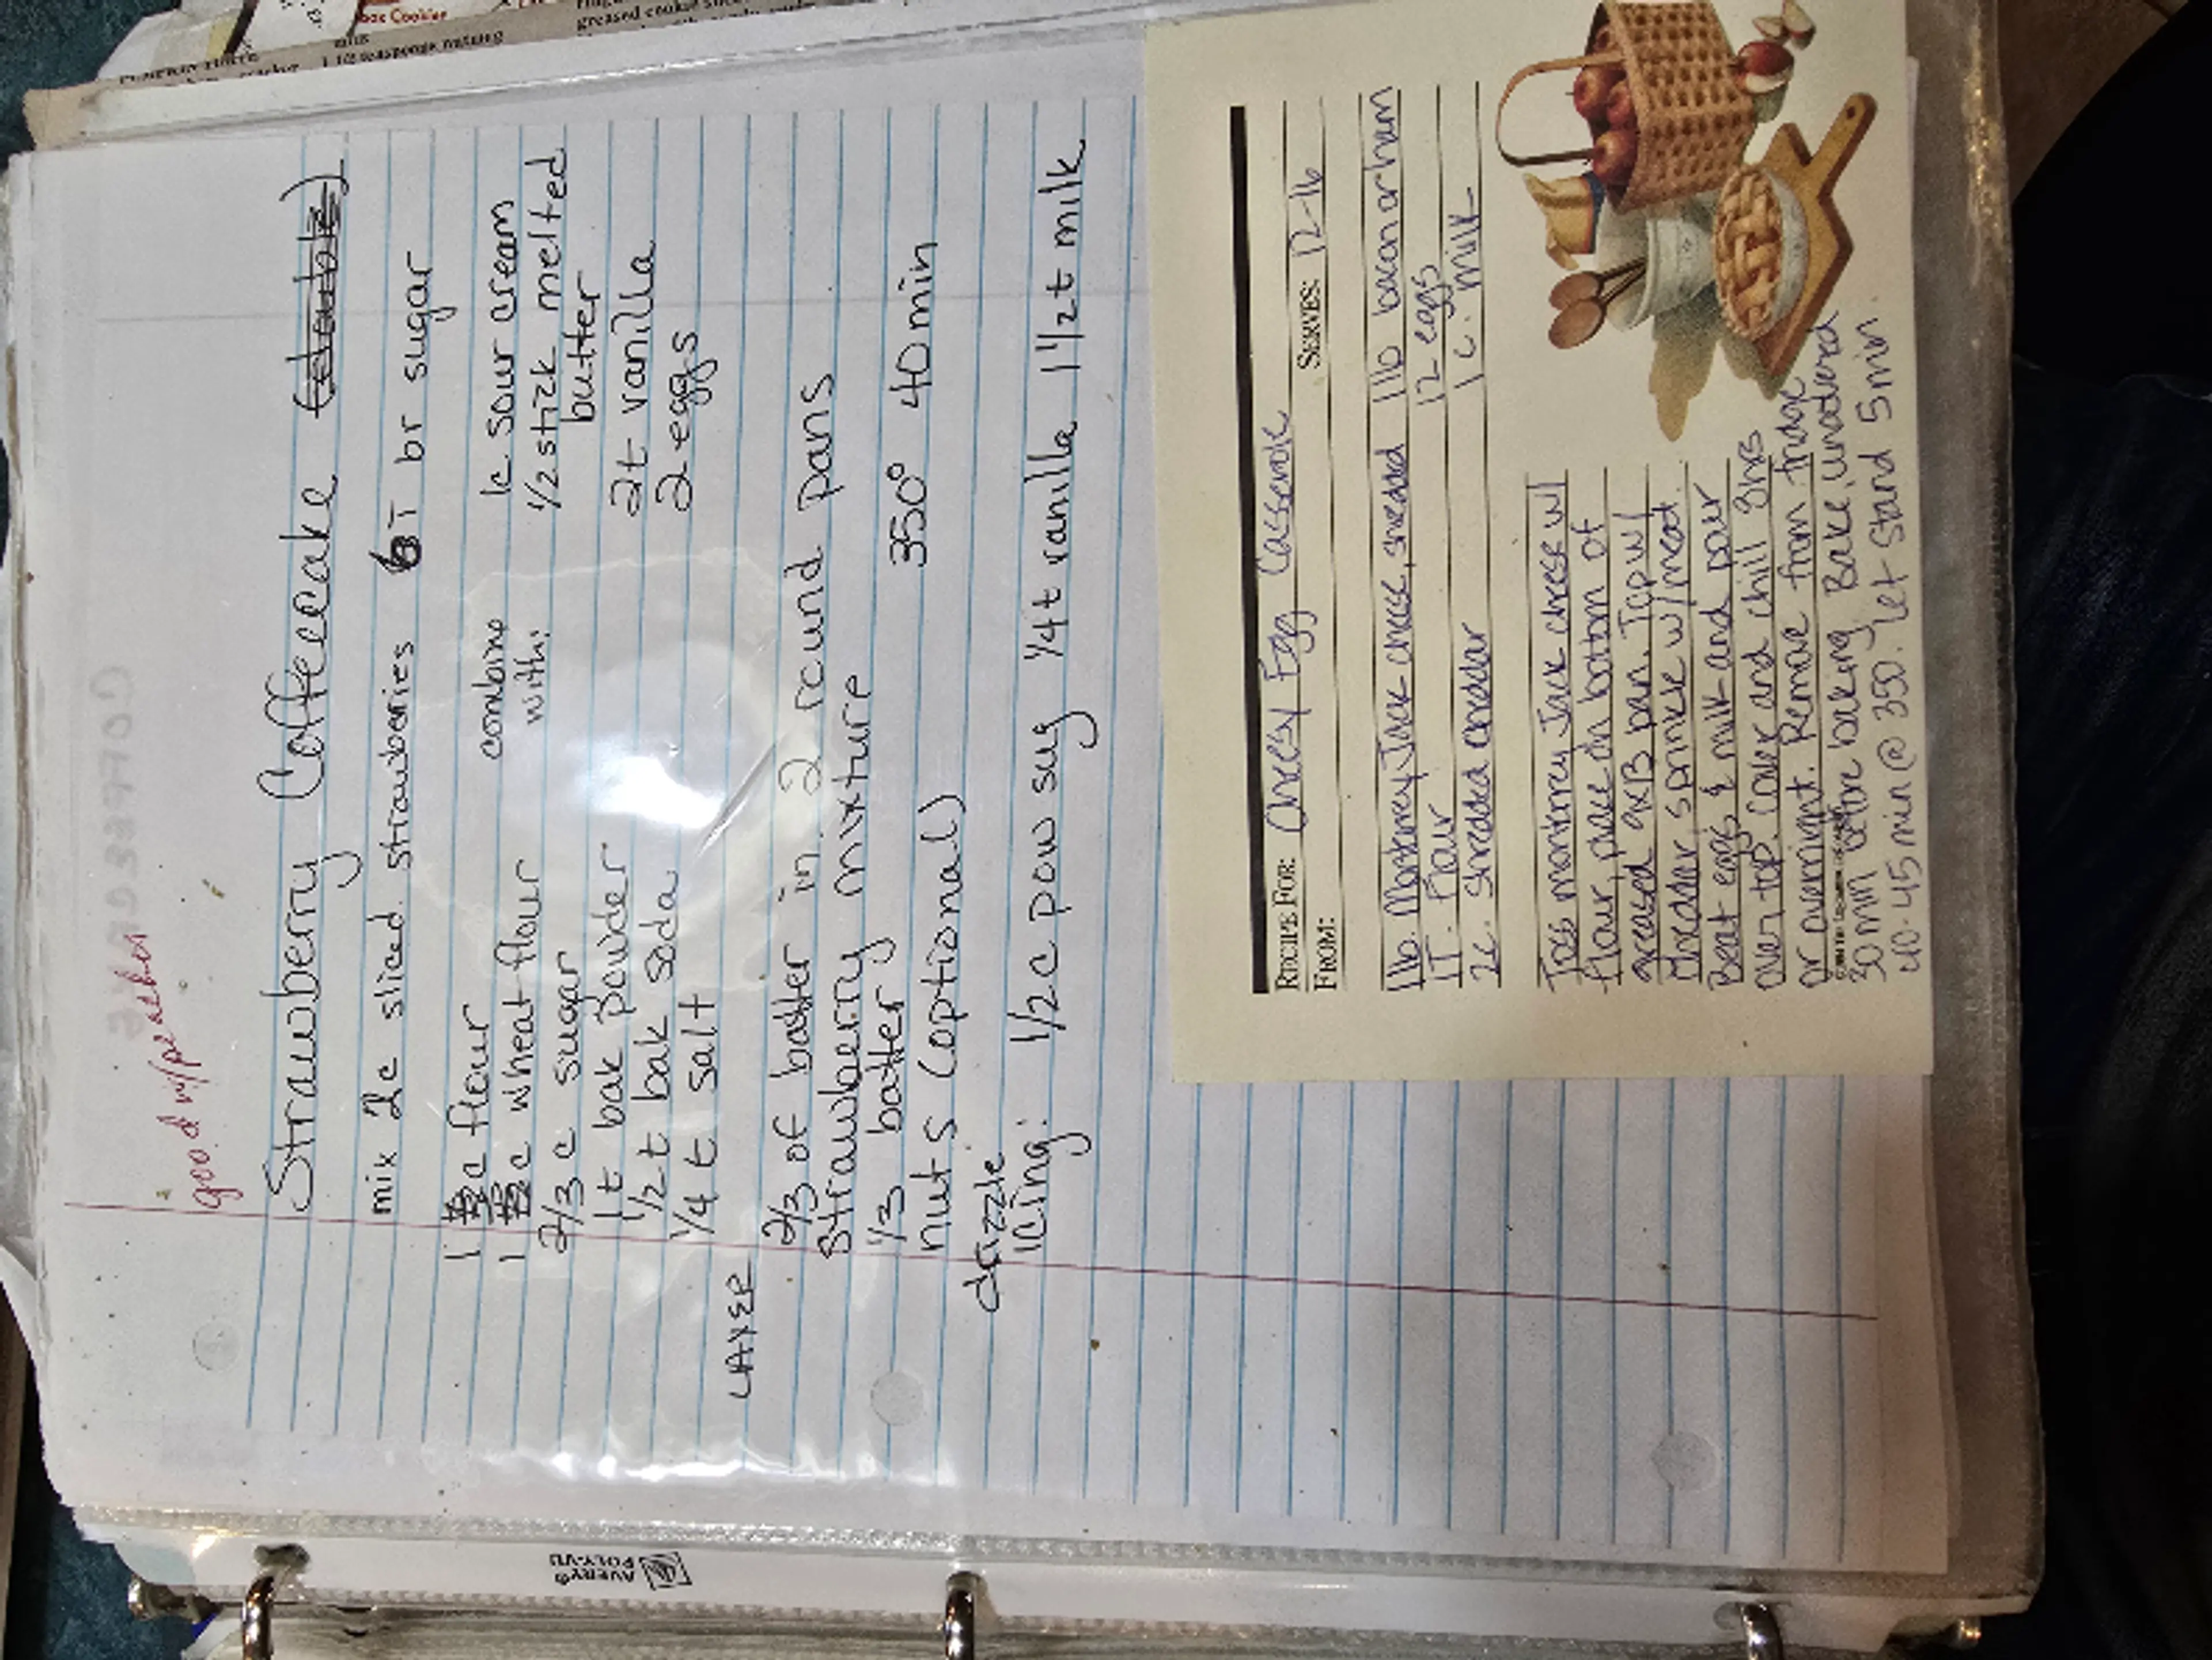 good w/peaches
Strawberry Coffeecake (double)
mix 2c sliced strawberries 6T br sugar
1 c flour
1 c wheat flour
2/3 c sugar
1t bak powder
1/2 t bak soda
1/4 t salt
combine
with:
1c sour cream
1/2 stick melted
butter
2t vanilla
2 eggs
LAYER
2/3 of batter in 2 round pans
strawberry mixture
1/3 batter 350° 40 min
nuts (optional)
drizzle
icing: 1/2 c pow sug 1/4t vanilla 1 1/2t milk
RECIPE FOR: Cheesy Egg Casserole
FROM: SERVES: 12-16
1lb. Monterey Jack cheese, shredded 1lb bacon or ham
1T. flour 12 eggs
2c. shredded cheddar 1 c. milk
Toss monterey Jack cheese w/
flour, place on bottom of
greased 9x13 pan. Top w/
cheddar, sprinkle w/meat.
Beat eggs & milk and pour
over top. Cover and chill 8hrs
or overnight. Remove from fridge
30 min before baking. Bake, uncovered
40-45 min @ 350. Let stand 5 min
AVERY®
POLY-VU
greased cookie
1/2 teaspoons nutmeg
Cookies